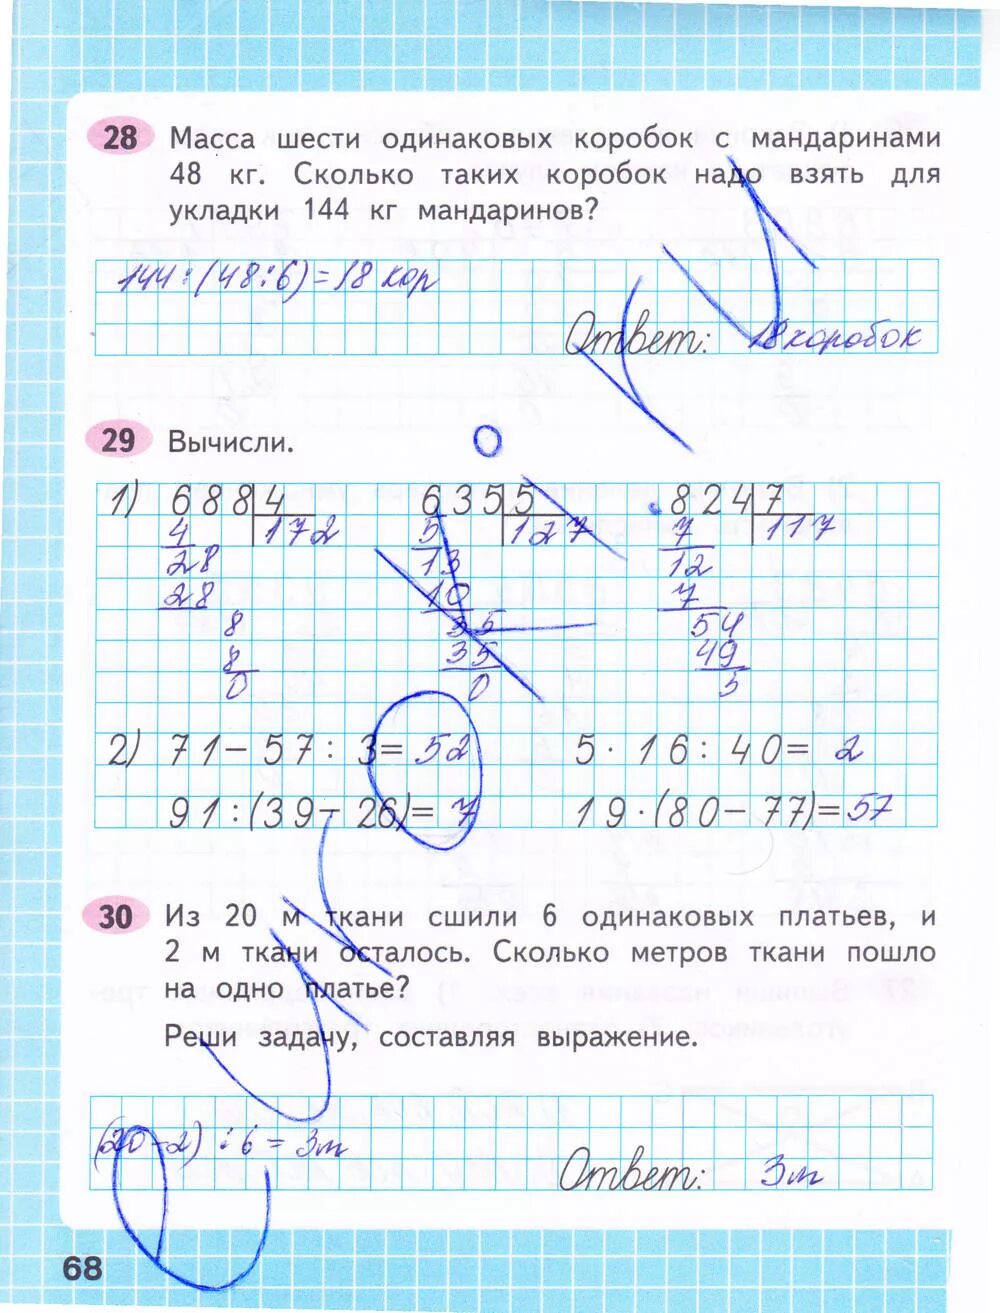 28 Масса шести одинаковых коробок с мандаринами
48 кг. Сколько таких коробок надо взять для
укладки 144 кг мандаринов?
144:(48:6)=18 кор
Ответ: 18 коробок
29 Вычисли.
1) 688 4 6355 5 824 7
4 172 5 127 7 117
28 13 12
28 10 7
8 35 54
8 35 49
0 0 5
2) 71-57:3=52 5·16:40=2
91:(39-26)=7 19·(80-77)=57
30 Из 20 м ткани сшили 6 одинаковых платьев, и
2 м ткани осталось. Сколько метров ткани пошло
на одно платье?
Реши задачу, составляя выражение.
(20-2):6=3м
Ответ: 3м
68